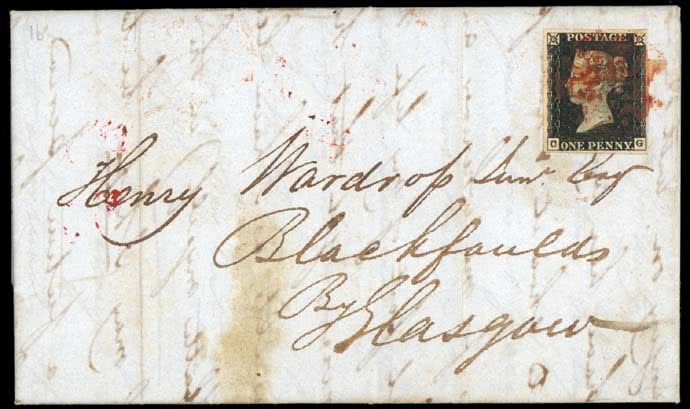 16
POSTAGE
C G
ONE PENNY
Henry Wardrop Junr. Esq
Blackfaulds
By Glasgow